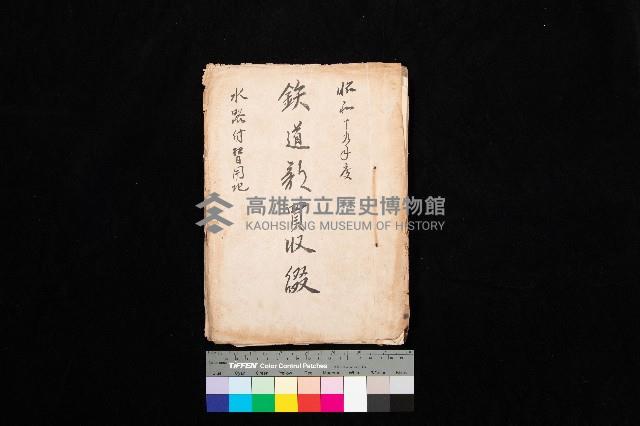 昭和十九年度
鉄道敷買収綴
水路付替用地
高雄市立歷史博物館
KAOHSIUNG MUSEUM OF HISTORY
TIFFEN Color Control Patches